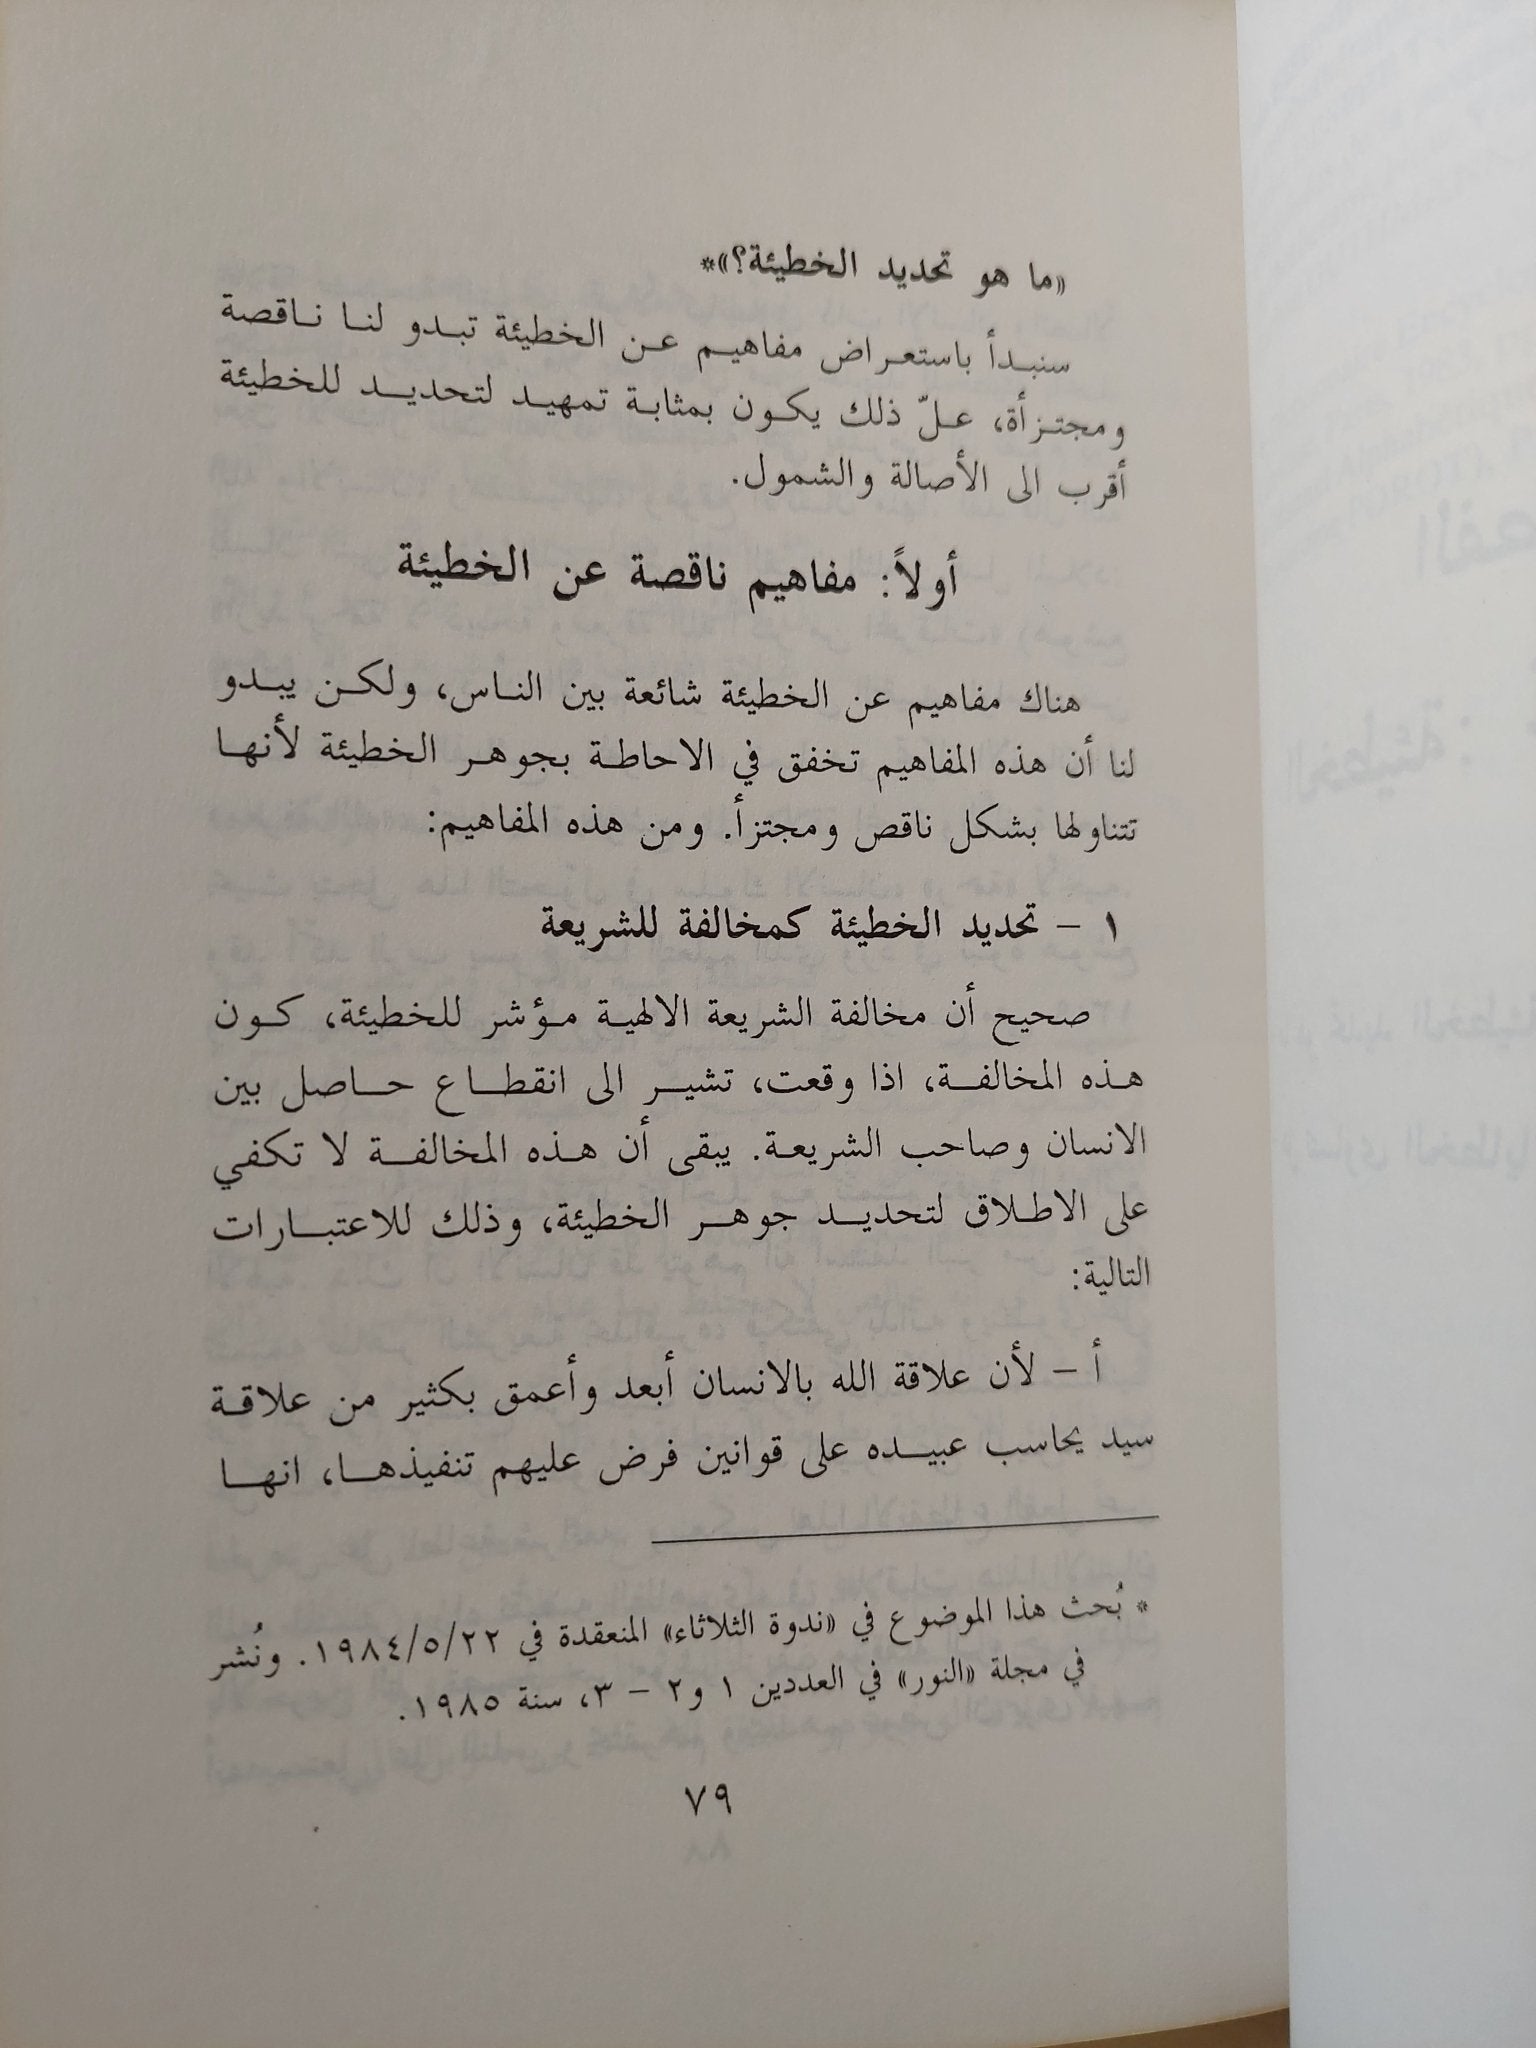 «ما هو تحديد الخطيئة؟»*
سنبدأ باستعراض مفاهيم عن الخطيئة تبدو لنا ناقصة
ومجتزأة، علّ ذلك يكون بمثابة تمهيد لتحديد للخطيئة
أقرب الى الأصالة والشمول.
أولاً: مفاهيم ناقصة عن الخطيئة
هناك مفاهيم عن الخطيئة شائعة بين الناس، ولكن يبدو
لنا أن هذه المفاهيم تخفق في الاحاطة بجوهر الخطيئة لأنها
تتناولها بشكل ناقص ومجتزأ. ومن هذه المفاهيم:
١ - تحديد الخطيئة كمخالفة للشريعة
صحيح أن مخالفة الشريعة الالهية مؤشر للخطيئة، كون
هذه المخالفة، اذا وقعت، تشير الى انقطاع حاصل بين
الانسان وصاحب الشريعة. يبقى أن هذه المخالفة لا تكفي
على الاطلاق لتحديد جوهر الخطيئة، وذلك للاعتبارات
التالية:
أ - لأن علاقة الله بالانسان أبعد وأعمق بكثير من علاقة
سيد يحاسب عبيده على قوانين فرض عليهم تنفيذها، انها
* بُحث هذا الموضوع في «ندوة الثلاثاء» المنعقدة في ١٩٨٤/٥/٢٢. ونُشر
في مجلة «النور» في العددين ١ و٢ - ٣، سنة ١٩٨٥.
٧٩